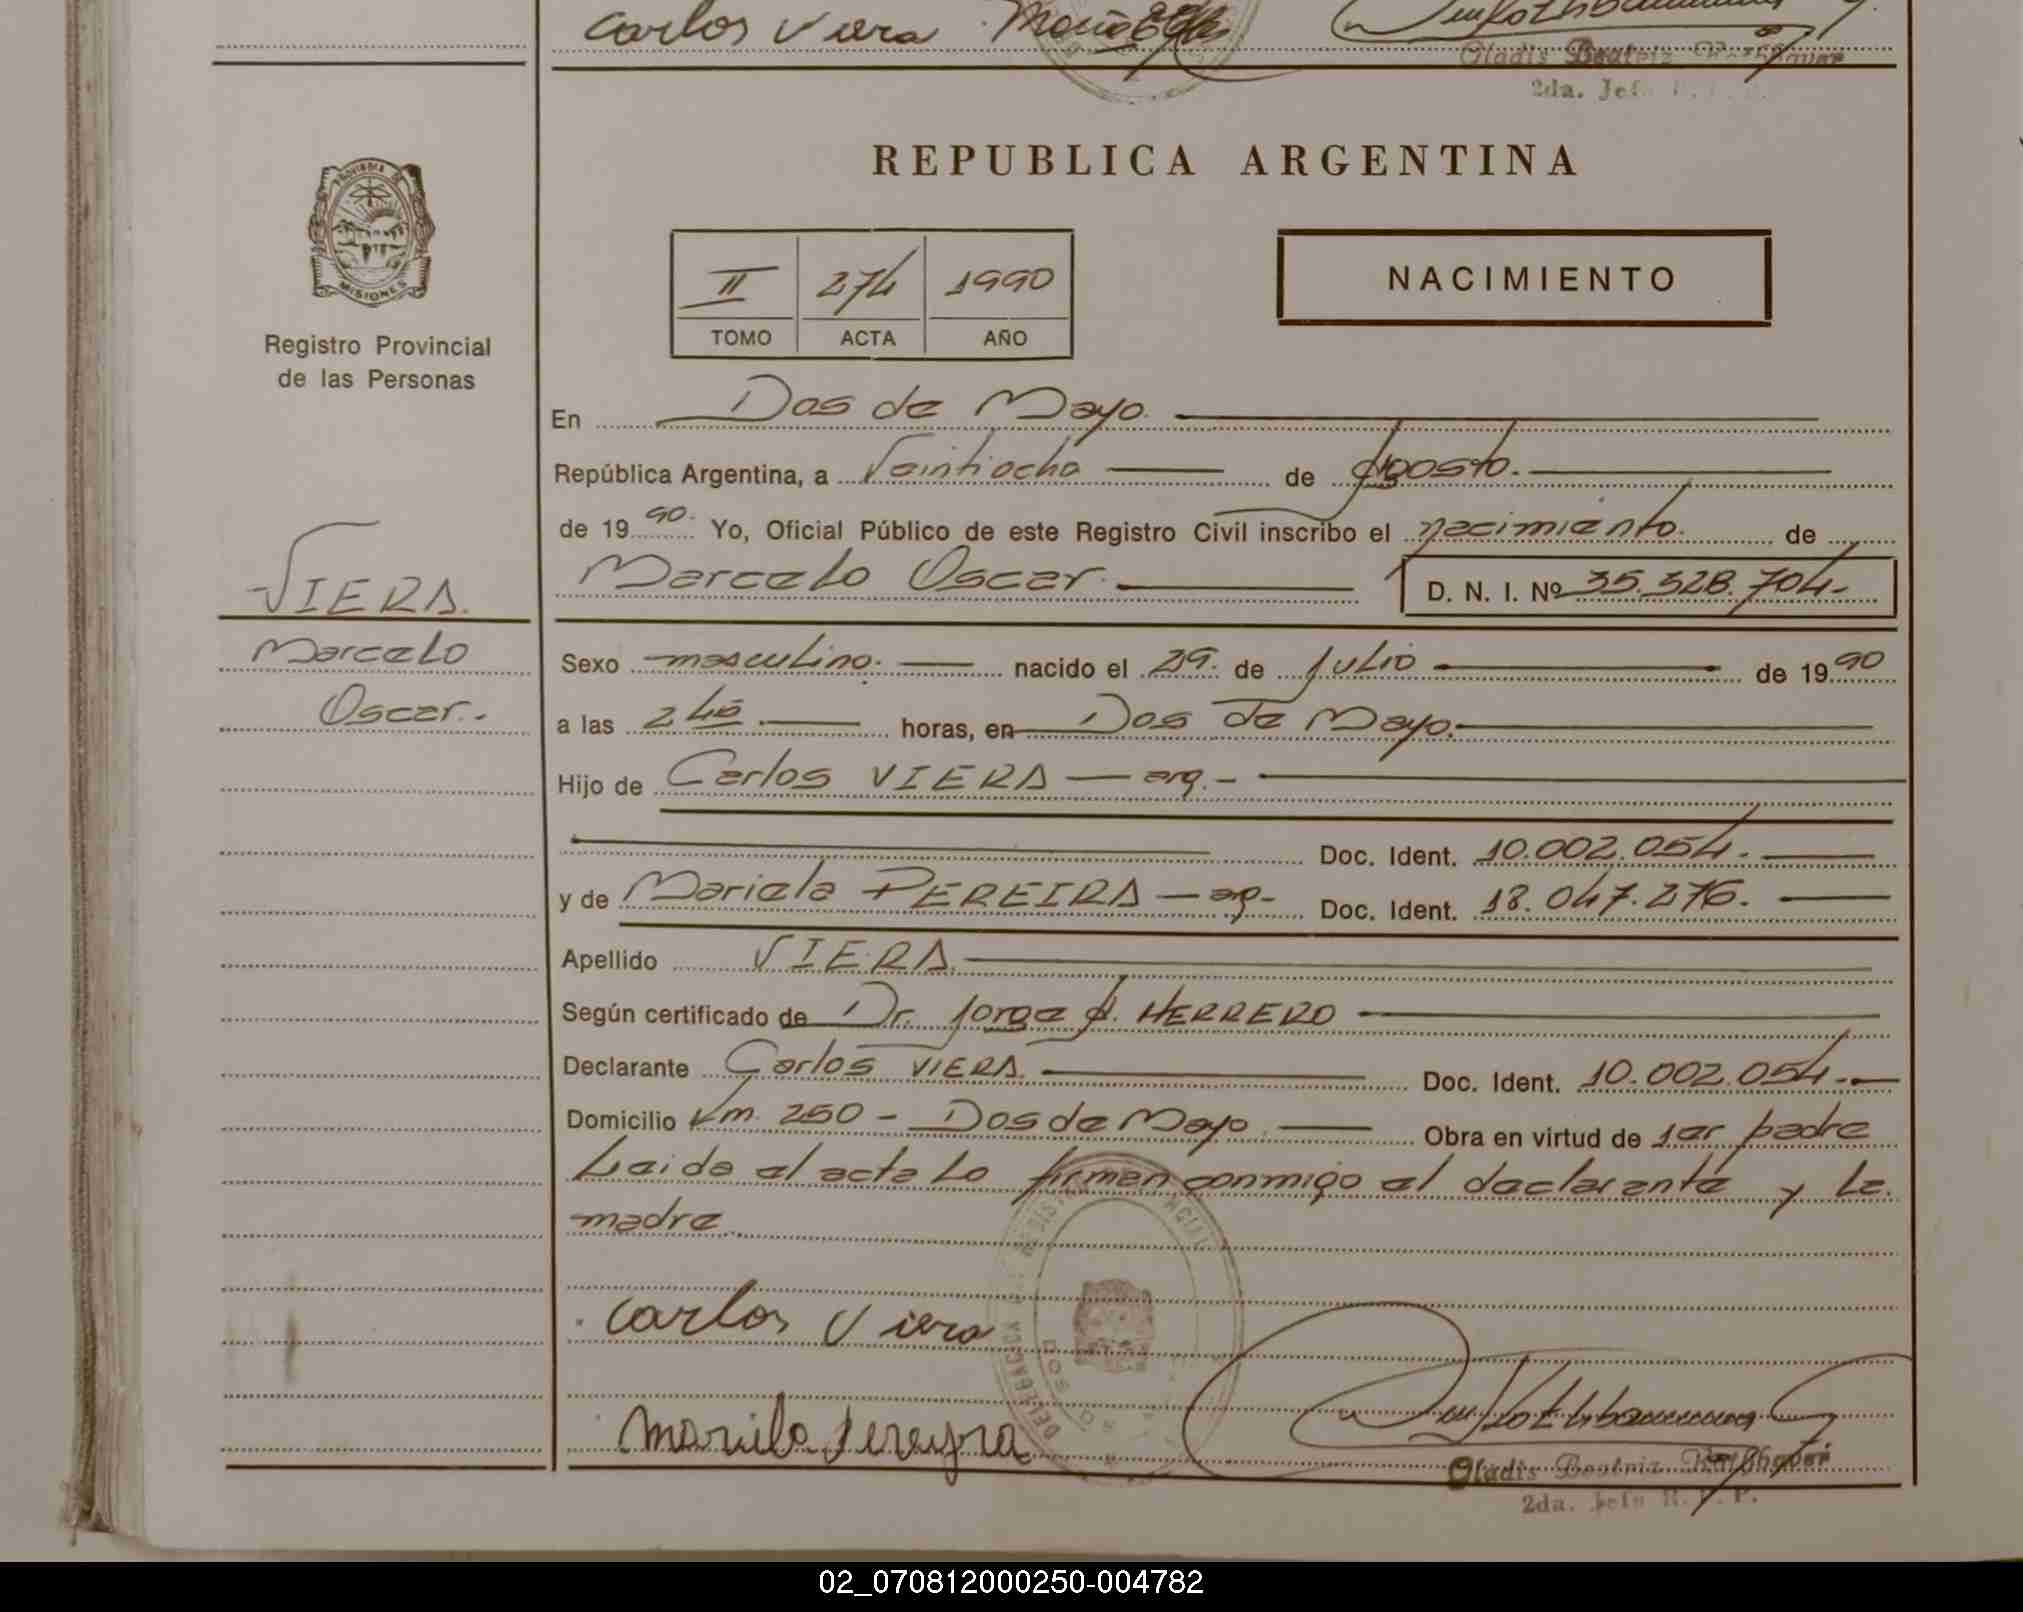 Carlos Viera
Gladis Beatriz
2da. Jefe
REPUBLICA ARGENTINA
PROVINCIA DE
MISIONES
Registro Provincial
de las Personas
II 274 1990
TOMO ACTA AÑO
NACIMIENTO
En Dos de Mayo.
República Argentina, a Veintiocho de Agosto.
de 19 90. Yo, Oficial Público de este Registro Civil inscribo el nacimiento. de
VIERA.
Marcelo
Oscar.-
Marcelo Oscar. D. N. I. Nº 35.328.704-
Sexo masculino. nacido el 29. de Julio de 19 90
a las 2 40 horas, en Dos de Mayo.
Hijo de Carlos VIERA — arg.-
Doc. Ident. 10.002.054.
y de Mariela PEREIRA — arg- Doc. Ident. 18.047.276.
Apellido VIERA.
Según certificado de Dr. Jorge A. HERRERO
Declarante Carlos VIERA. Doc. Ident. 10.002.054.-
Domicilio Km. 250 - Dos de Mayo. Obra en virtud de ser padre
Leida el acta lo firman conmigo el declarante y la
madre.
Carlos Viera
Mariela Pereyra
Gladis Beatriz
2da. Jefe R. P. P.
02_070812000250-004782